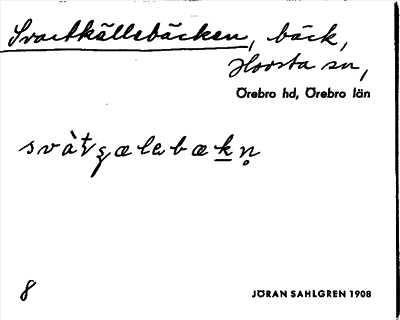 Svartkällebäcken, bäck,
Hovsta sn,
Örebro hd, Örebro län
svàtʒælebækn̥
8 JÖRAN SAHLGREN 1908